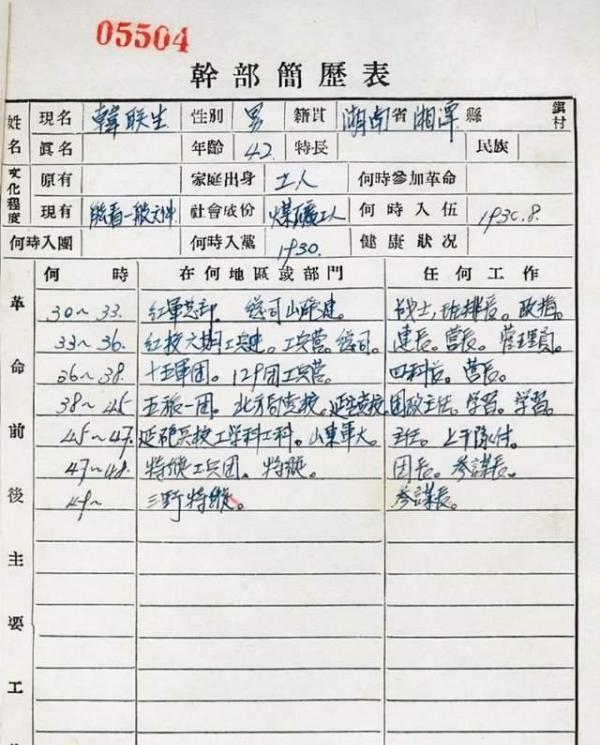 05504
幹部簡歷表
姓名 現名 韓联生 性別 男 籍貫 湖南省湘潭縣 鎮村
眞名 年齡 42 特長 民族
文化程度 原有 家庭出身 工人 何時參加革命
現有 能看一般文件 社會成份 煤礦工人 何時入伍 1930.8.
何時入團 何時入黨 1930. 健康狀况
革命前後主要工 何時 在何地區或部門 任何工作
30~33. 紅軍总部 战士,班排長。政指。
33~36. 红校六期工兵連。工兵营。 連長。营長。管理員。
36~38. 十五軍团。129团工兵营。 四科长。营長。
38~45 五旅一团。北方局党校。延安党校 团政主任。学習。学習。
45~47. 延砲兵校工学科工科。山東軍大。 主任。上干隊
47~48. 特縱工兵团。特縱。 团長。参謀長。
49~ 三野特縱。 参謀長。